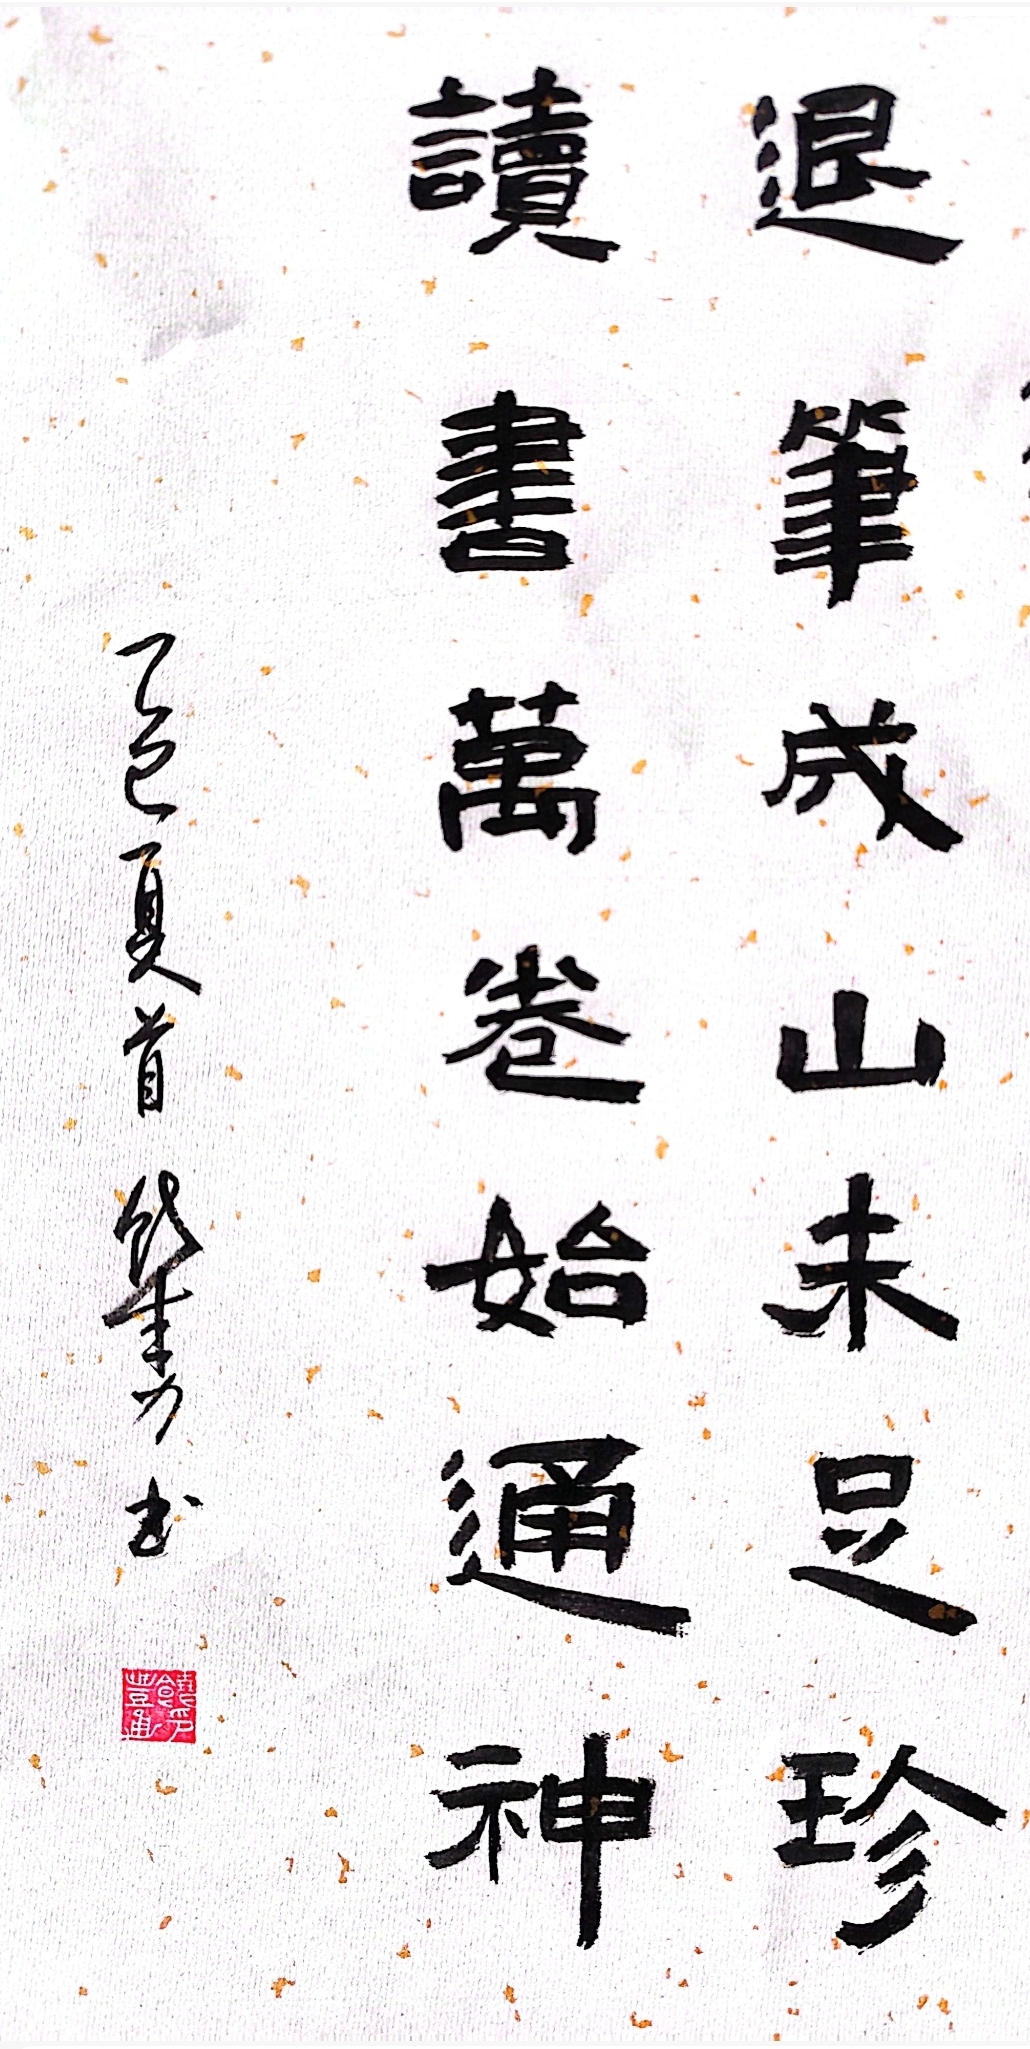 退筆成山未足珍
讀書萬卷始通神
乙巳夏首
書